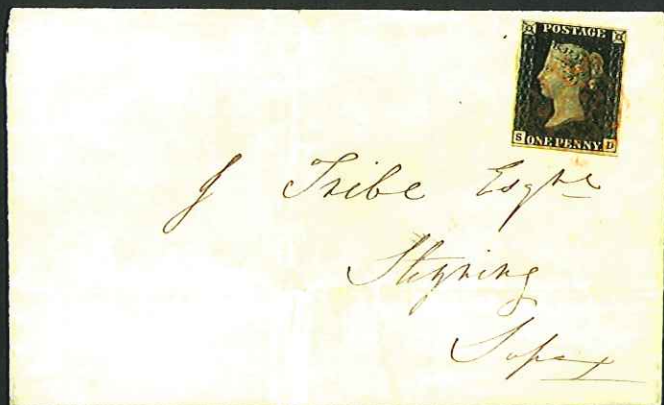 POSTAGE
S ONE PENNY D
J Tribe Esqre
Steyning
Sussex